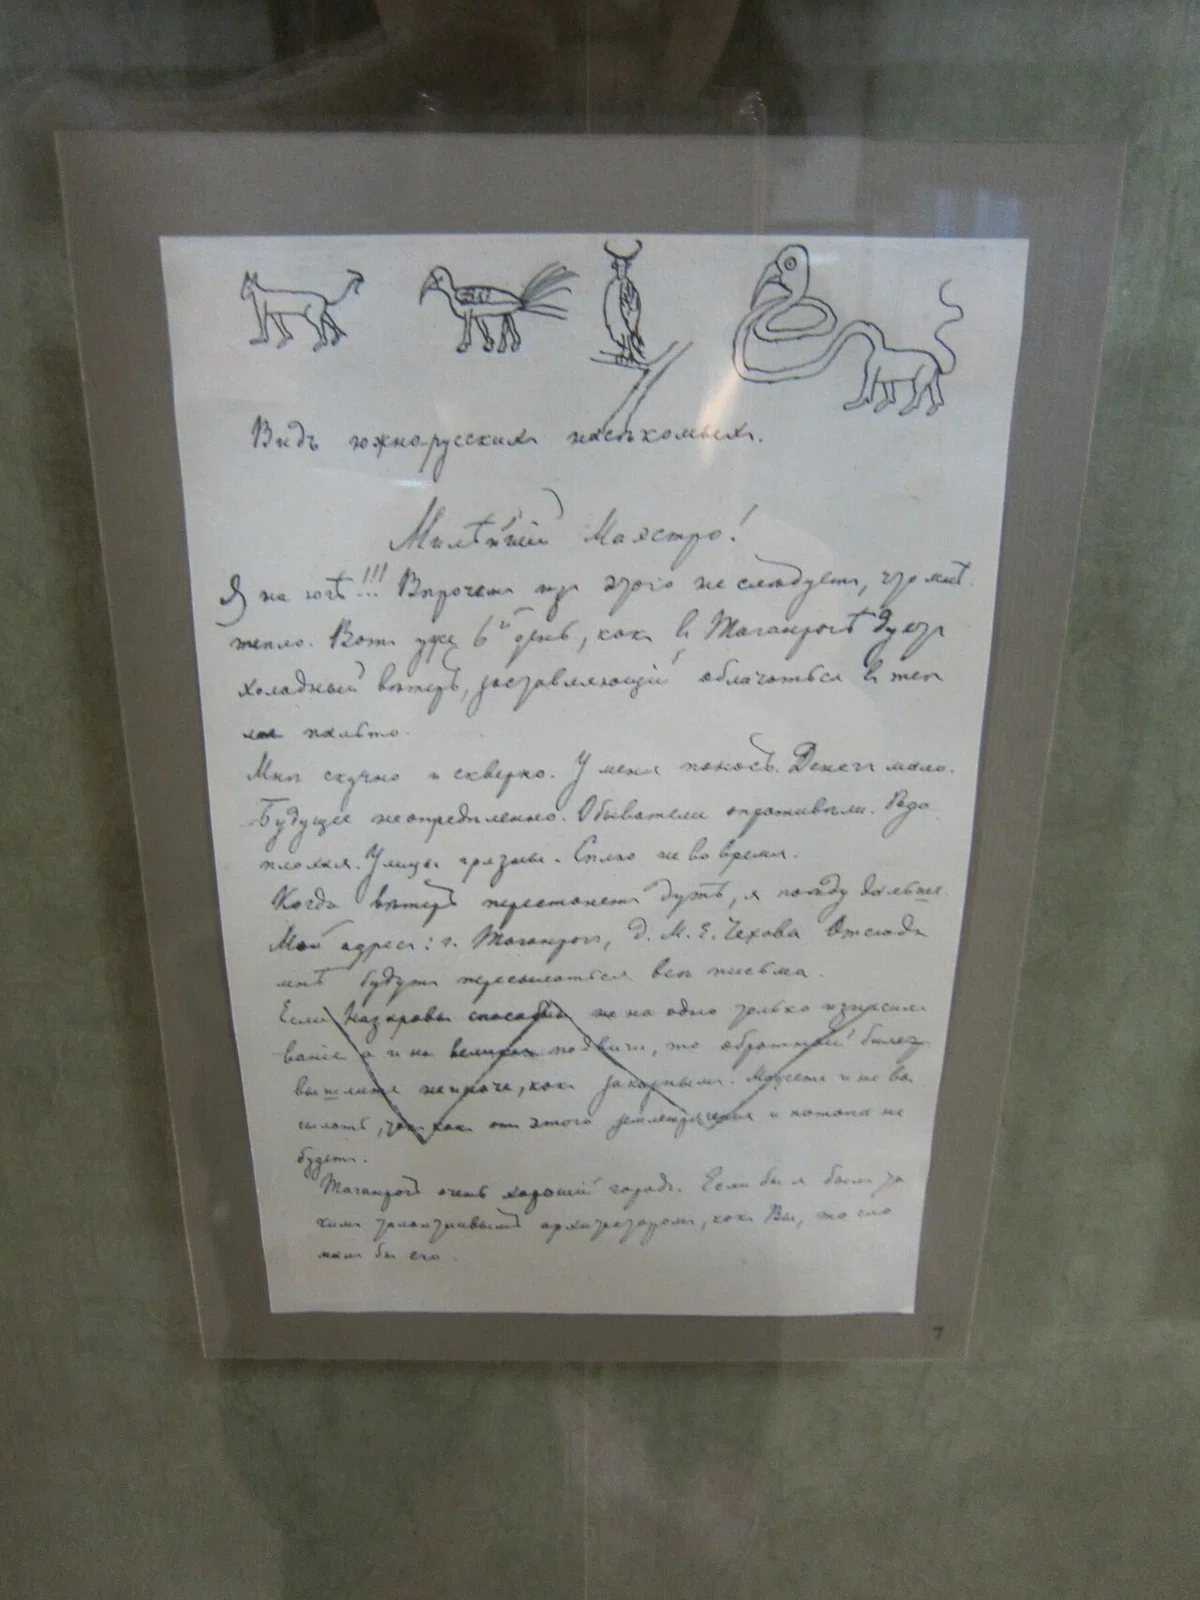 Видъ южно-русскихъ насѣкомыхъ.
Милѣйшій Маэстро!
Я на югѣ!!! Впрочемъ изъ этого не слѣдуетъ, что мнѣ
тепло. Вотъ уже 6й день, какъ въ Таганрогѣ дуетъ
холодный вѣтеръ, заставляющій облачаться въ теп
лое пальто.
Мнѣ скучно и скверно. У меня поносъ. Денегъ мало.
Будущее неопредѣленно. Обыватели опротивѣли. Вода
плохая. Улицы грязны. Сплю не во время.
Когда вѣтеръ перестанетъ дуть, я поѣду дальше.
Мой адресъ: г. Таганрогъ, д. М. Е. Чехова Отсюда
мнѣ будутъ пересылаться всѣ письма.
Если Назаровъ способенъ не на одно только изнасило
ваніе а и на великіе подвиги, то обратный билетъ
вышлите не иначе, какъ заказнымъ. Можете и не вы
сылать, такъ какъ отъ этого землетрясенія и потопа не
будетъ.
Таганрогъ очень хорошій городъ. Если бы я былъ та
кимъ талантливымъ архитекторомъ, какъ Вы, то сло
малъ бы его.
7